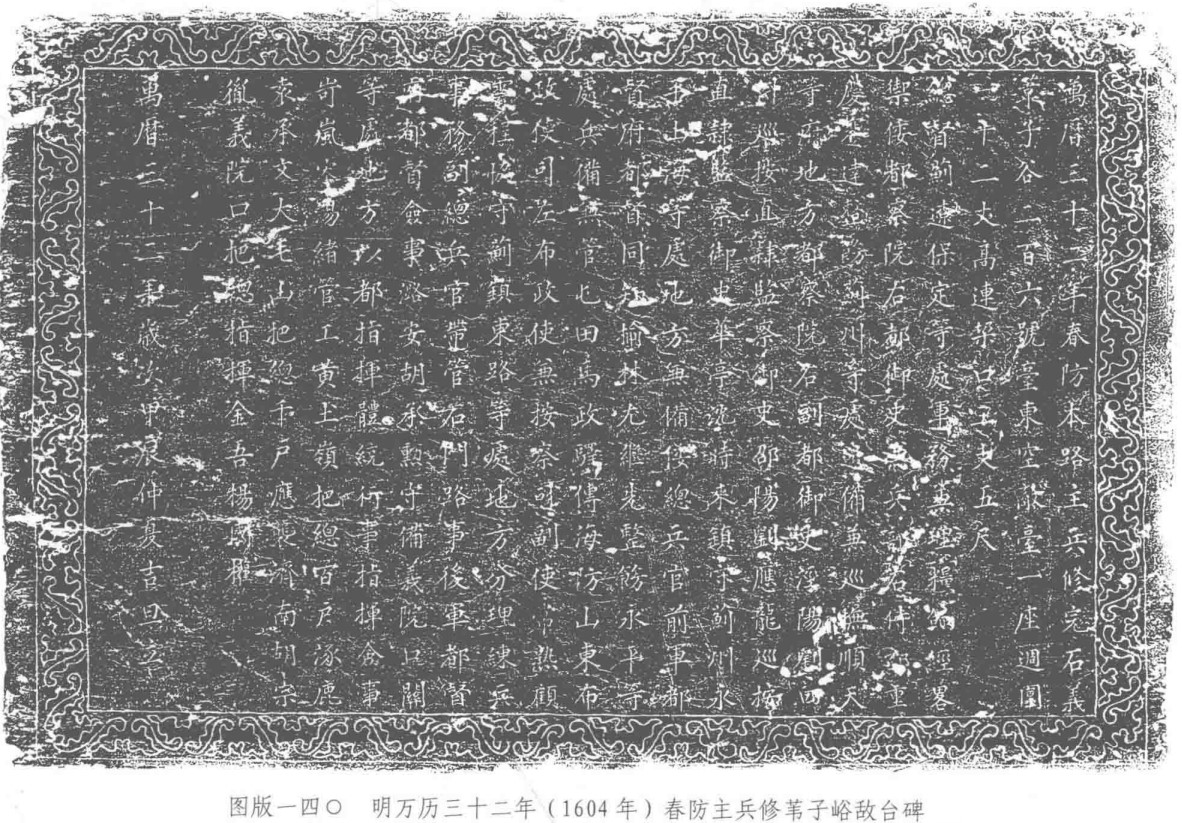 萬曆三十二年春防本路主兵修完石義
葦子谷一百六號臺東空敵臺一座週圍
一十二丈高連垜口三丈五尺
總督薊遼保定等處軍務兼理糧餉經畧
禦倭都察院右都御史兼兵部右侍
處上建邊防州等處兼巡撫順天
等府地方都察院右副都御史
巡按直隸監察御史邵陽劉應龍巡按
直隸監察御史華亭沈時來鎮守薊州永
平山海等處地方兼備倭總兵官前軍都
督府都督同知榆林尤繼先整飭永平等
處兵備兼管屯田馬政驛傳海防山東布
政使司左布政使兼按察司副使常熟顧
雲程協守薊鎮東路等處地方分理練兵
事務副總兵官帶管石門路事後軍都督
府都督僉事潞安胡承勳守備義院口關
等處地方以都指揮體統行事指揮僉事
岢嵐楊緒管工黃土嶺把總百戶涿鹿
袁承文大毛山把總千戶應襲濟南胡宗
胤義院口把總指揮金吾楊
萬曆三十二年歲次甲辰仲夏吉旦立
图版一四〇 明万历三十二年（1604 年）春防主兵修苇子峪敌台碑